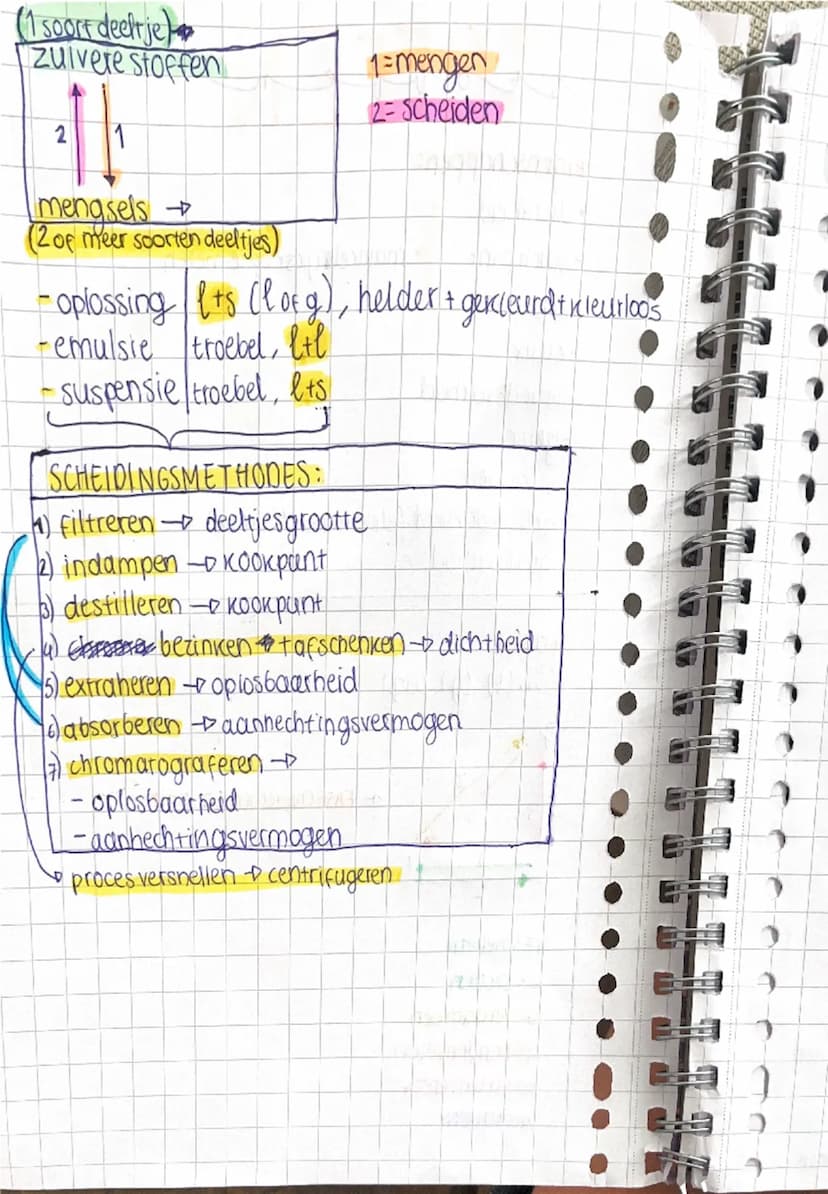 (1 soort deeltje)→
zuivere stoffen
1=mengen
2=scheiden
2 1
mengsels →
(2 of meer soorten deeltjes)
-oplossing l+s (l of g), helder + gekleurd+kleurloos
-emulsie troebel, l+l
-suspensie troebel, l+s
SCHEIDINGSMETHODES:
1) filtreren → deeltjesgrootte
2) indampen → kookpunt
3) destilleren → kookpunt
4) bezinken + afschenken → dichtheid
5) extraheren → oplosbaarheid
6) absorberen → aanhechtingsvermogen
7) chromarograferen →
- oplosbaarheid
-aanhechtingsvermogen
proces versnellen → centrifugeren